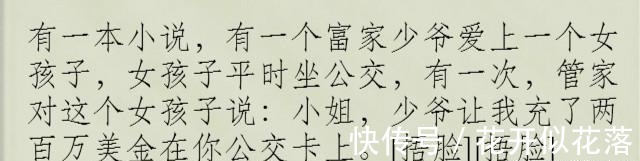 有一本小说，有一个富家少爷爱上一个女
孩子，女孩子平时坐公交，有一次，管家
对这个女孩子说：小姐，少爷让我充了两
百万美金在你公交卡上。[捂脸][捂脸]
快传号 / 花开似花落